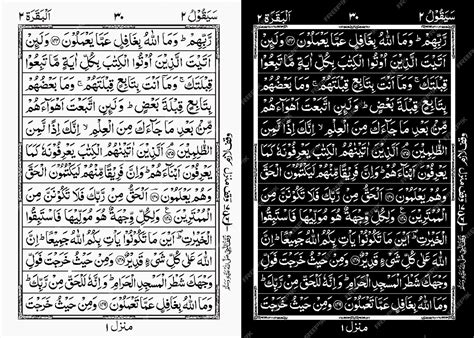 سَيَقُوْلُ ٢ ٣٠ اَلْبَقَرَة ٢
رَبِّهِمْ ؕ وَمَا اللّٰهُ بِغَافِلٍ عَمَّا يَعْمَلُوْنَ ۝ وَلَىِٕنْ
اَتَيْتَ الَّذِيْنَ اُوْتُوا الْكِتٰبَ بِكُلِّ اٰيَةٍ مَّا تَبِعُوْا
قِبْلَتَكَ ۚ وَمَآ اَنْتَ بِتَابِعٍ قِبْلَتَهُمْ ۚ وَمَا بَعْضُهُمْ
بِتَابِعٍ قِبْلَةَ بَعْضٍ ؕ وَلَىِٕنِ اتَّبَعْتَ اَهْوَآءَهُمْ
مِّنْۢ بَعْدِ مَا جَآءَكَ مِنَ الْعِلْمِ ۙ اِنَّكَ اِذًا لَّمِنَ
الظّٰلِمِيْنَ ۝ اَلَّذِيْنَ اٰتَيْنٰهُمُ الْكِتٰبَ يَعْرِفُوْنَهٗ كَمَا
يَعْرِفُوْنَ اَبْنَآءَهُمْ ؕ وَاِنَّ فَرِيْقًا مِّنْهُمْ لَيَكْتُمُوْنَ الْحَقَّ
وَهُمْ يَعْلَمُوْنَ ۝ اَلْحَقُّ مِنْ رَّبِّكَ فَلَا تَكُوْنَنَّ مِنَ
الْمُمْتَرِيْنَ ۝ وَلِكُلٍّ وِّجْهَةٌ هُوَ مُوَلِّيْهَا فَاسْتَبِقُوا
الْخَيْرٰتِ ؕ اَيْنَ مَا تَكُوْنُوْا يَاْتِ بِكُمُ اللّٰهُ جَمِيْعًا ؕ اِنَّ
اللّٰهَ عَلٰى كُلِّ شَىْءٍ قَدِيْرٌ ۝ وَمِنْ حَيْثُ خَرَجْتَ فَوَلِّ
وَجْهَكَ شَطْرَ الْمَسْجِدِ الْحَرَامِ ؕ وَاِنَّهٗ لَلْحَقُّ مِنْ رَّبِّكَ ؕ
وَمَا اللّٰهُ بِغَافِلٍ عَمَّا تَعْمَلُوْنَ ۝ وَمِنْ حَيْثُ خَرَجْتَ
منزل ١
سَيَقُوْلُ ٢ ٣٠ اَلْبَقَرَة ٢
رَبِّهِمْ ؕ وَمَا اللّٰهُ بِغَافِلٍ عَمَّا يَعْمَلُوْنَ ۝ وَلَىِٕنْ
اَتَيْتَ الَّذِيْنَ اُوْتُوا الْكِتٰبَ بِكُلِّ اٰيَةٍ مَّا تَبِعُوْا
قِبْلَتَكَ ۚ وَمَآ اَنْتَ بِتَابِعٍ قِبْلَتَهُمْ ۚ وَمَا بَعْضُهُمْ
بِتَابِعٍ قِبْلَةَ بَعْضٍ ؕ وَلَىِٕنِ اتَّبَعْتَ اَهْوَآءَهُمْ
مِّنْۢ بَعْدِ مَا جَآءَكَ مِنَ الْعِلْمِ ۙ اِنَّكَ اِذًا لَّمِنَ
الظّٰلِمِيْنَ ۝ اَلَّذِيْنَ اٰتَيْنٰهُمُ الْكِتٰبَ يَعْرِفُوْنَهٗ كَمَا
يَعْرِفُوْنَ اَبْنَآءَهُمْ ؕ وَاِنَّ فَرِيْقًا مِّنْهُمْ لَيَكْتُمُوْنَ الْحَقَّ
وَهُمْ يَعْلَمُوْنَ ۝ اَلْحَقُّ مِنْ رَّبِّكَ فَلَا تَكُوْنَنَّ مِنَ
الْمُمْتَرِيْنَ ۝ وَلِكُلٍّ وِّجْهَةٌ هُوَ مُوَلِّيْهَا فَاسْتَبِقُوا
الْخَيْرٰتِ ؕ اَيْنَ مَا تَكُوْنُوْا يَاْتِ بِكُمُ اللّٰهُ جَمِيْعًا ؕ اِنَّ
اللّٰهَ عَلٰى كُلِّ شَىْءٍ قَدِيْرٌ ۝ وَمِنْ حَيْثُ خَرَجْتَ فَوَلِّ
وَجْهَكَ شَطْرَ الْمَسْجِدِ الْحَرَامِ ؕ وَاِنَّهٗ لَلْحَقُّ مِنْ رَّبِّكَ ؕ
وَمَا اللّٰهُ بِغَافِلٍ عَمَّا تَعْمَلُوْنَ ۝ وَمِنْ حَيْثُ خَرَجْتَ
منزل ١